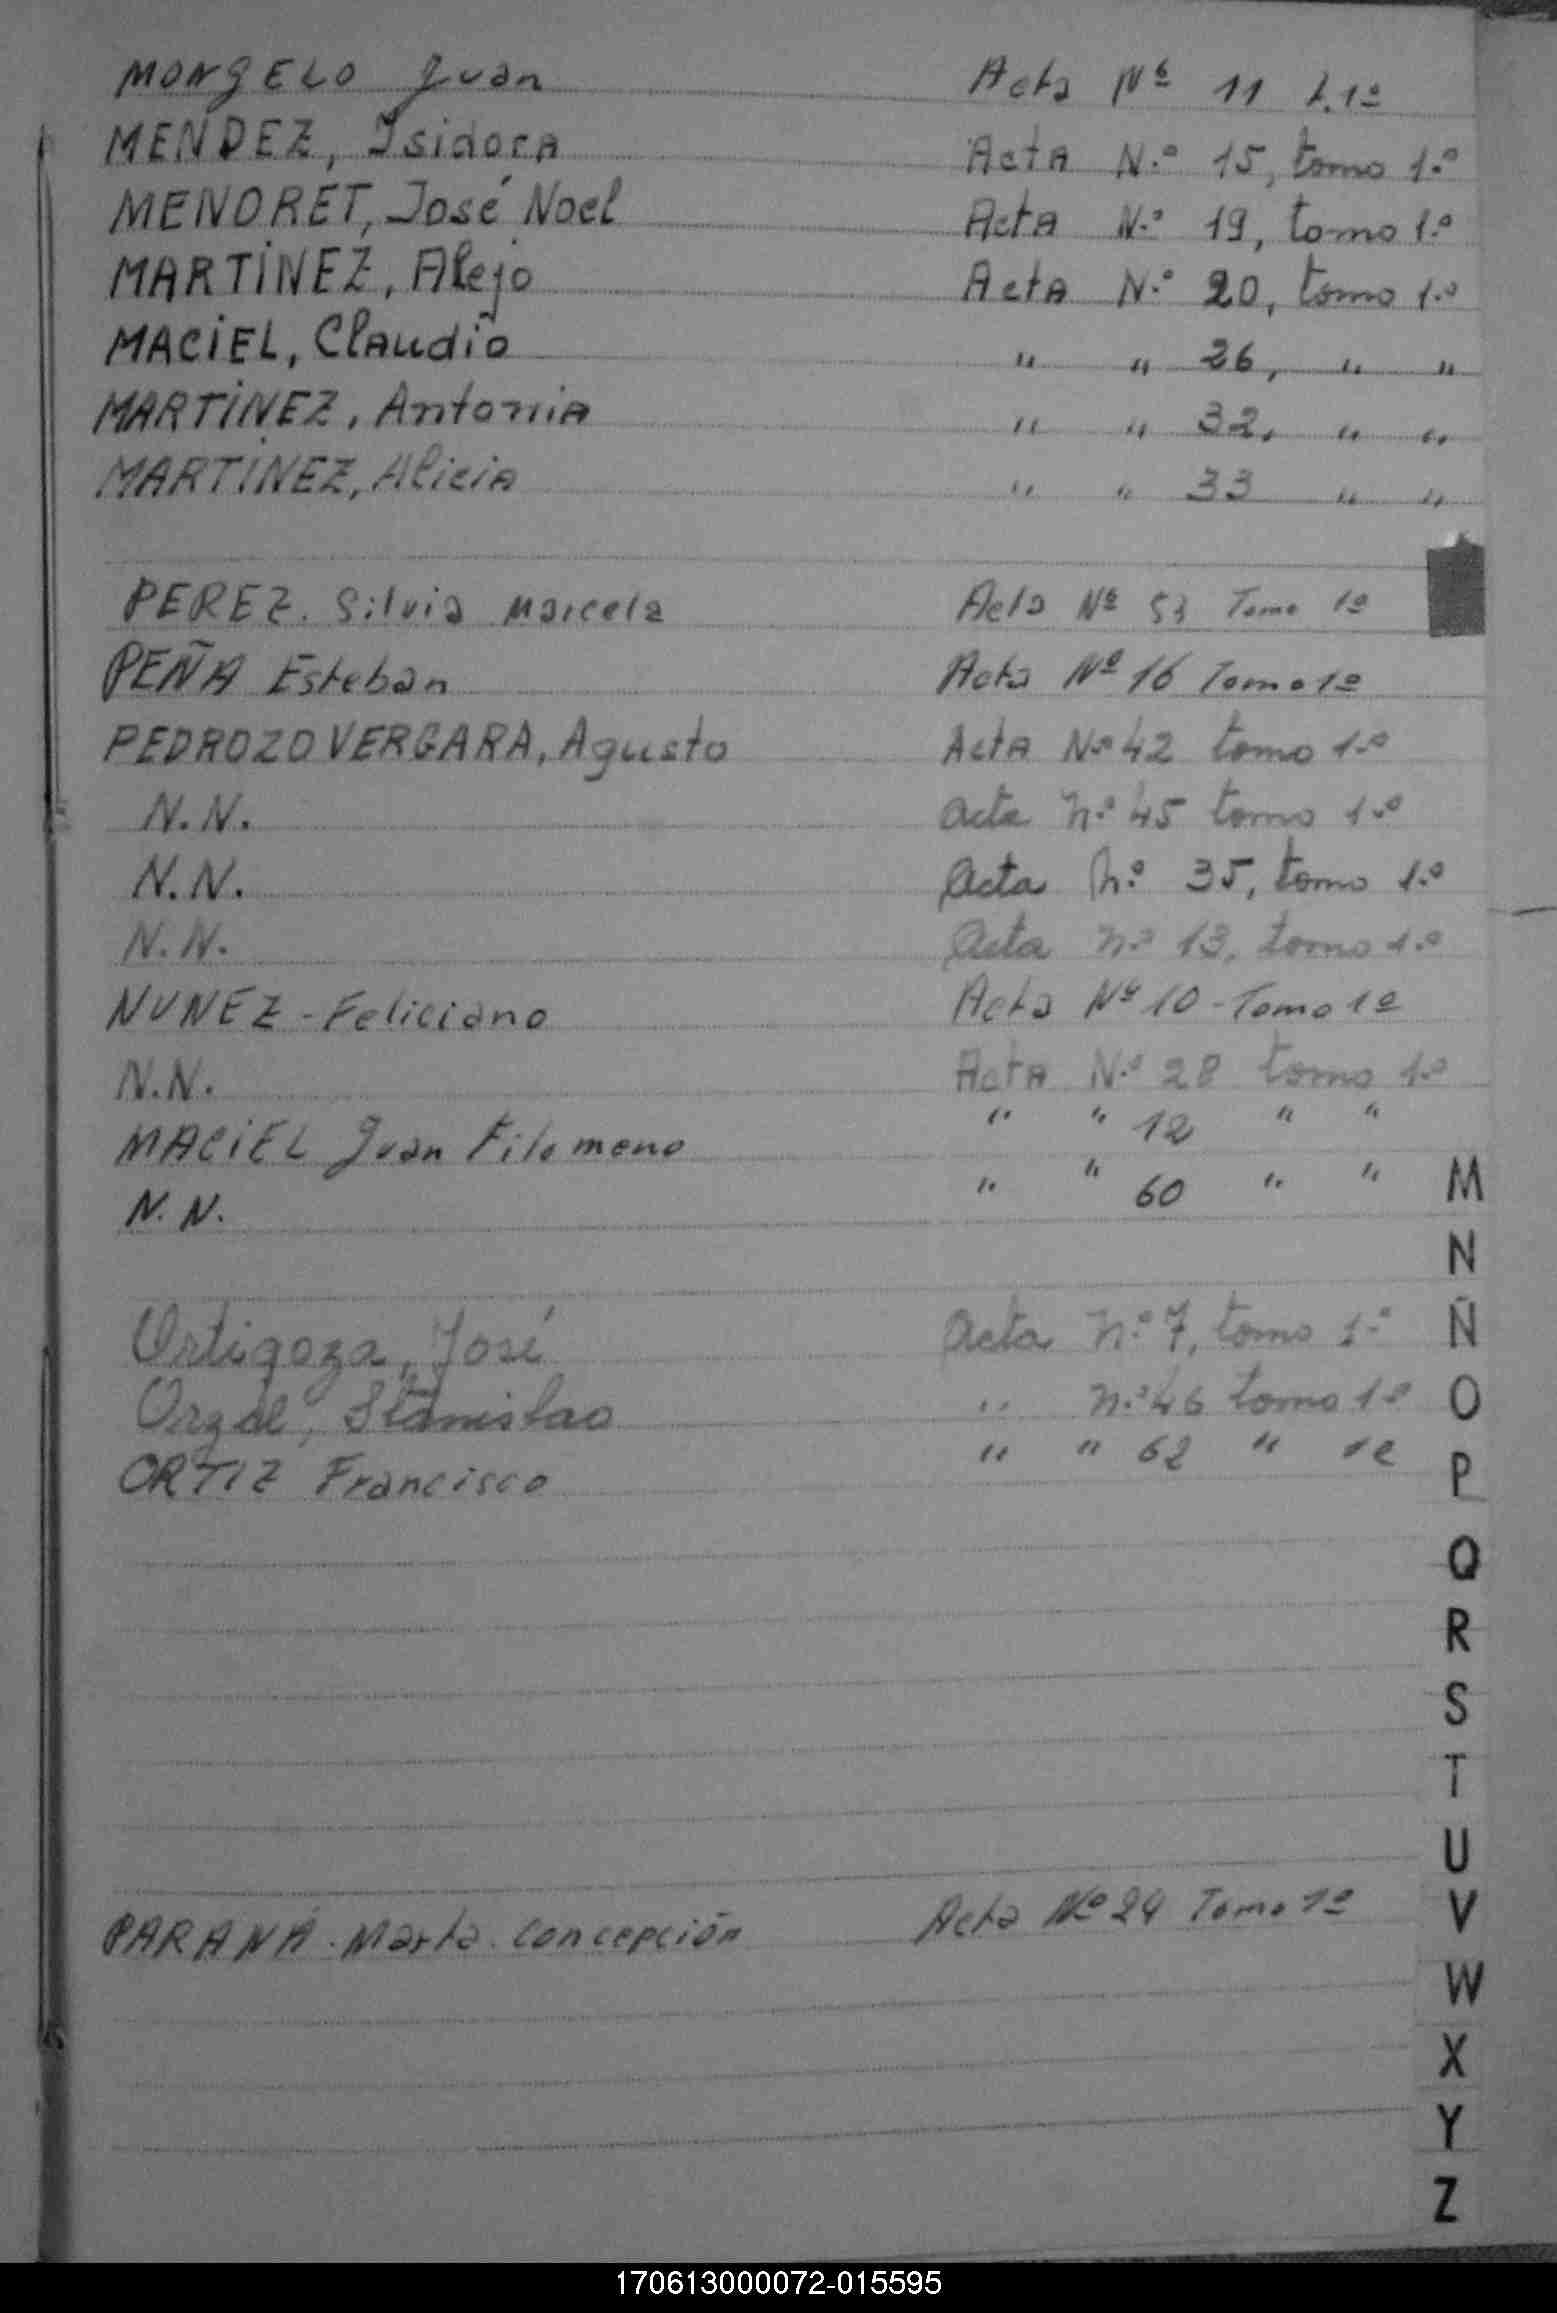 MONGELO Juan Acta Nº 11 t.1º
MENDEZ, Isidora Acta N.º 15, tomo 1.º
MENORET, José Noel Acta N.º 19, tomo 1.º
MARTiNEZ, Alejo Acta N.º 20, tomo 1.º
MACiEL, Claudio " " 26, " "
MARTiNEZ, Antonia " " 32, " "
MARTiNEZ, Alicia " " 33 " "
PEREZ. Silvia Marcela Acta Nº 53 Tomo 1º
PEÑA Esteban Acta Nº 16 Tomo 1º
PEDROZO VERGARA, Agusto Acta Nº 42 tomo 1.º
N.N. Acta N.º 45 tomo 1.º
N.N. Acta N.º 35, tomo 1.º
N.N. Acta N.º 13, tomo 1.º
NUNEZ - Feliciano Acta Nº 10 - Tomo 1º
N.N. Acta N.º 28 tomo 1.º
MACiEL Juan Filomeno " " 12 " "
N.N. " " 60 " "
Ortigoza, José Acta N.º 7, tomo 1.º
Orzal, Stanislao " N.º 46 tomo 1.º
ORTIZ Francisco " " 62 " 1º
PARANÁ. Marta. Concepción Acta Nº 24 Tomo 1º
M
N
Ñ
O
P
Q
R
S
T
U
V
W
X
Y
Z
170613000072-015595